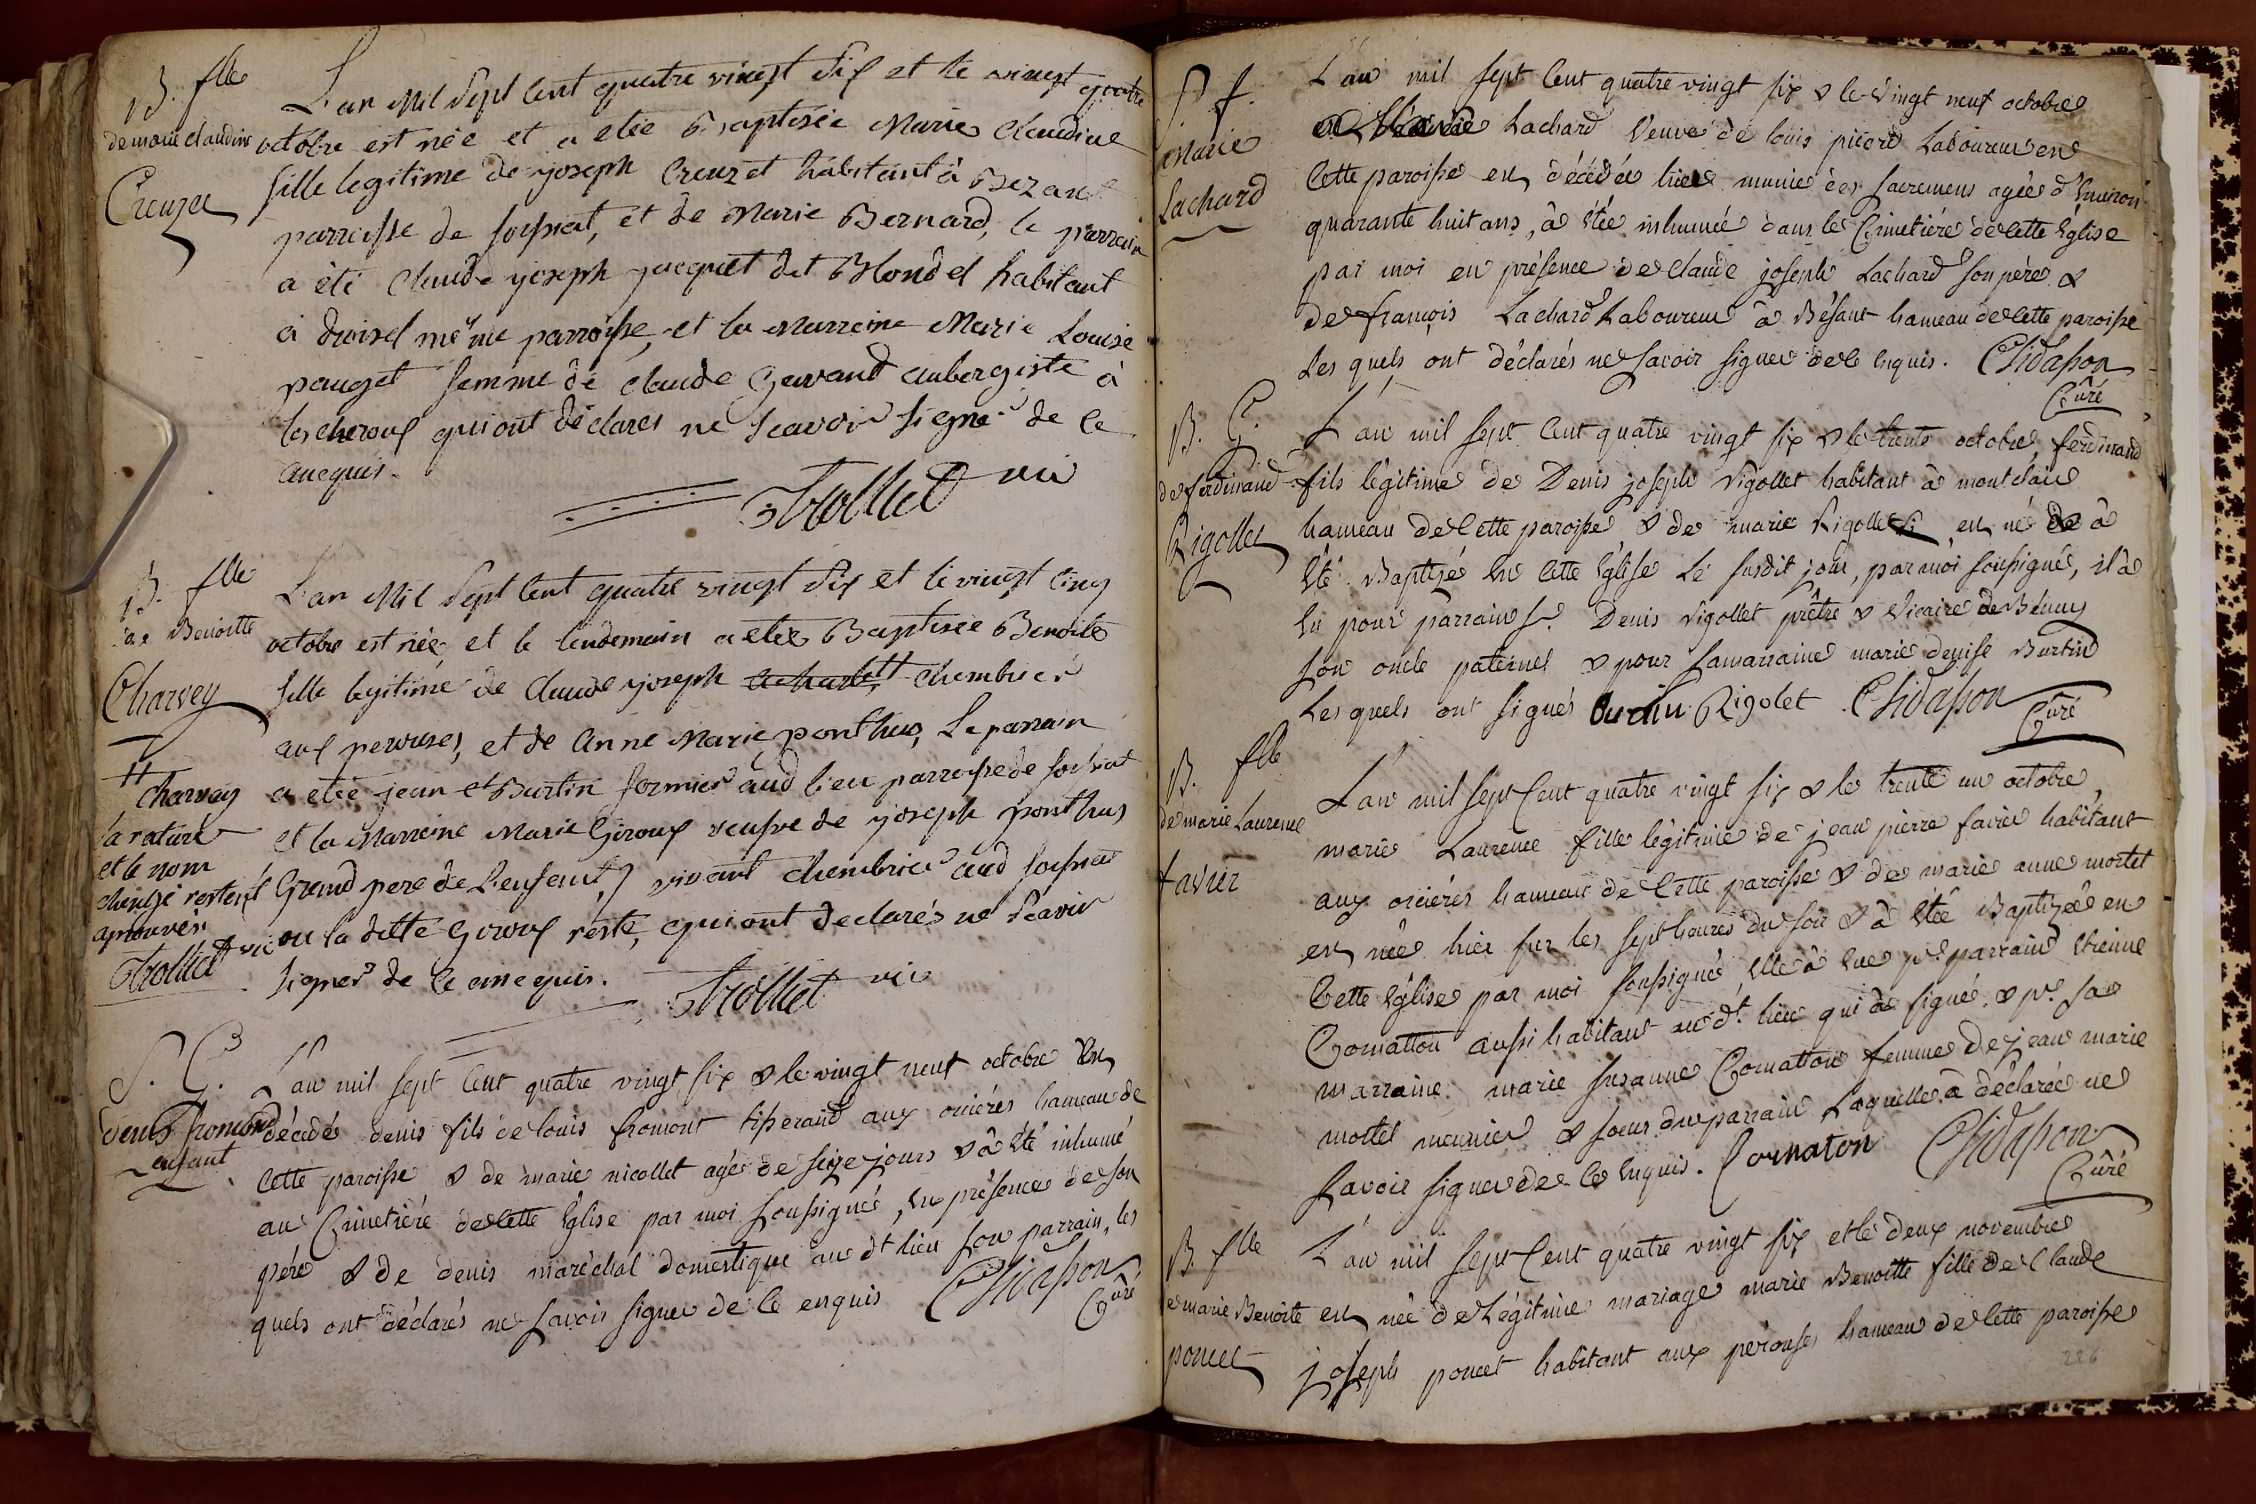 B. flle
de marie claudine
Creuzet
L'an Mil Sept Cent quatre vingt Six et le vingt quatre
octobre est née et a etée Baptisée Marie Claudine
fille legitime de joseph Creuzet habitant à Bezant
parroisse de Soissiat, et de Marie Bernard, le parrain
a été Claude joseph jacquet dit Blondel habitant
à même parroisse, et la Marreine Marie Louise
pauget femme de claude Gavand aubergiste à
les cheroux qui ont déclarés ne scavoir signé de ce
anequis.
Trolliet vic
B. flle
de Benoitte
Charvey
L'an Mil Sept Cent quatre vingt Six et le vingt Cinq
octobre est née et le lendemain a etée Baptisée Benoite
fille legitime de Claude joseph chambrier
aux perouses, et de Anne Marie ponthus, Le parrain
a etée jean Burtin fermier aud lieu parroisse de Soissiat
et la Marreine Marie Giroux veufve de joseph ponthus
Grand pere de L'enfant, vivant chambrier aud Soissiat
ou la ditte Giroux reste, qui ont declarés ne scavoir
signer de ce anequis.
Trolliet vic
# charvey
la rature
et le nom
changé restent
aprouvés
Trolliet vic
S. G.
denis fromont
enfant
L'an mil sept Cent quatre vingt six & le vingt neuf octobre est
décédé denis fils de louis fromont tisserand aux oriéres hameau de
cette paroisse & de marie nicollet agé de seize jours & à été inhumé
au Cimetiére de cette Eglise par moi soussigné, en présence de son
pére & de denis maréchal domestique au dt lieu son parrain, les
quels ont déclarés ne savoir signer de ce enquis Chidasson
Curé
S. f.
Marie
Lachard
L'an mil sept Cent quatre vingt six & le vingt neuf octobre
Lachard Veuve de louis picord Laboureur en
cette paroisse est décédée hier munie des sacremens agée d'Environ
quarante huit ans, à étée inhumée dans le Cimetiére de cette Eglise
par moi en présence de Claude joseph Lachard son pére &
de françois Lachard Laboureur à Bésant hameau de cette paroisse
Les quels ont déclarés ne savoir signer de ce enquis. Chidasson
Curé
B. G.
de ferdinand
Rigollet
L'an mil sept Cent quatre vingt six & le trente octobre, ferdinand
fils légitime de Denis joseph Rigollet habitant à montclair
hameau de cette paroisse & de marie Rigollet est né & à
Eté Baptizé En cette Eglise Le susdit jour, par moi soussigné, il à
Eu pour parrain Sr. Denis Rigollet prêtre & Vicaire de
son oncle paternel & pour sa marraine marie denise Burtin
Les quels ont signés burtin Rigolet Chidasson
Curé
B. flle
de marie Laurence
favier
L'an mil sept Cent quatre vingt six & le trente un octobre,
marie Laurence fille légitime de jean pierre favier habitant
aux oriéres hameau de Cette paroisse & de marie anne mortel
est née hier sur les sept heures du soir & à étée Baptizée en
Cette Eglise par moi soussigné, Elle à Eue pr. parrain Etienne
Cornatton aussi habitant au dt. lieu qui à signé & pr. sa
marraine marie susanne Cornatton femme de jean marie
mortel meunier & soeur du parrain Laquelle à déclarée ne
savoir signer de ce Enquis. Cornaton Chidasson
Curé
B. flle
de marie Benoite
poncet
L'an mil sept Cent quatre vingt six et le deux novembre
est née de Légitime mariage marie Benoitte fille de Claude
joseph poncet habitant aux pérouses hameau de Cette paroisse
226